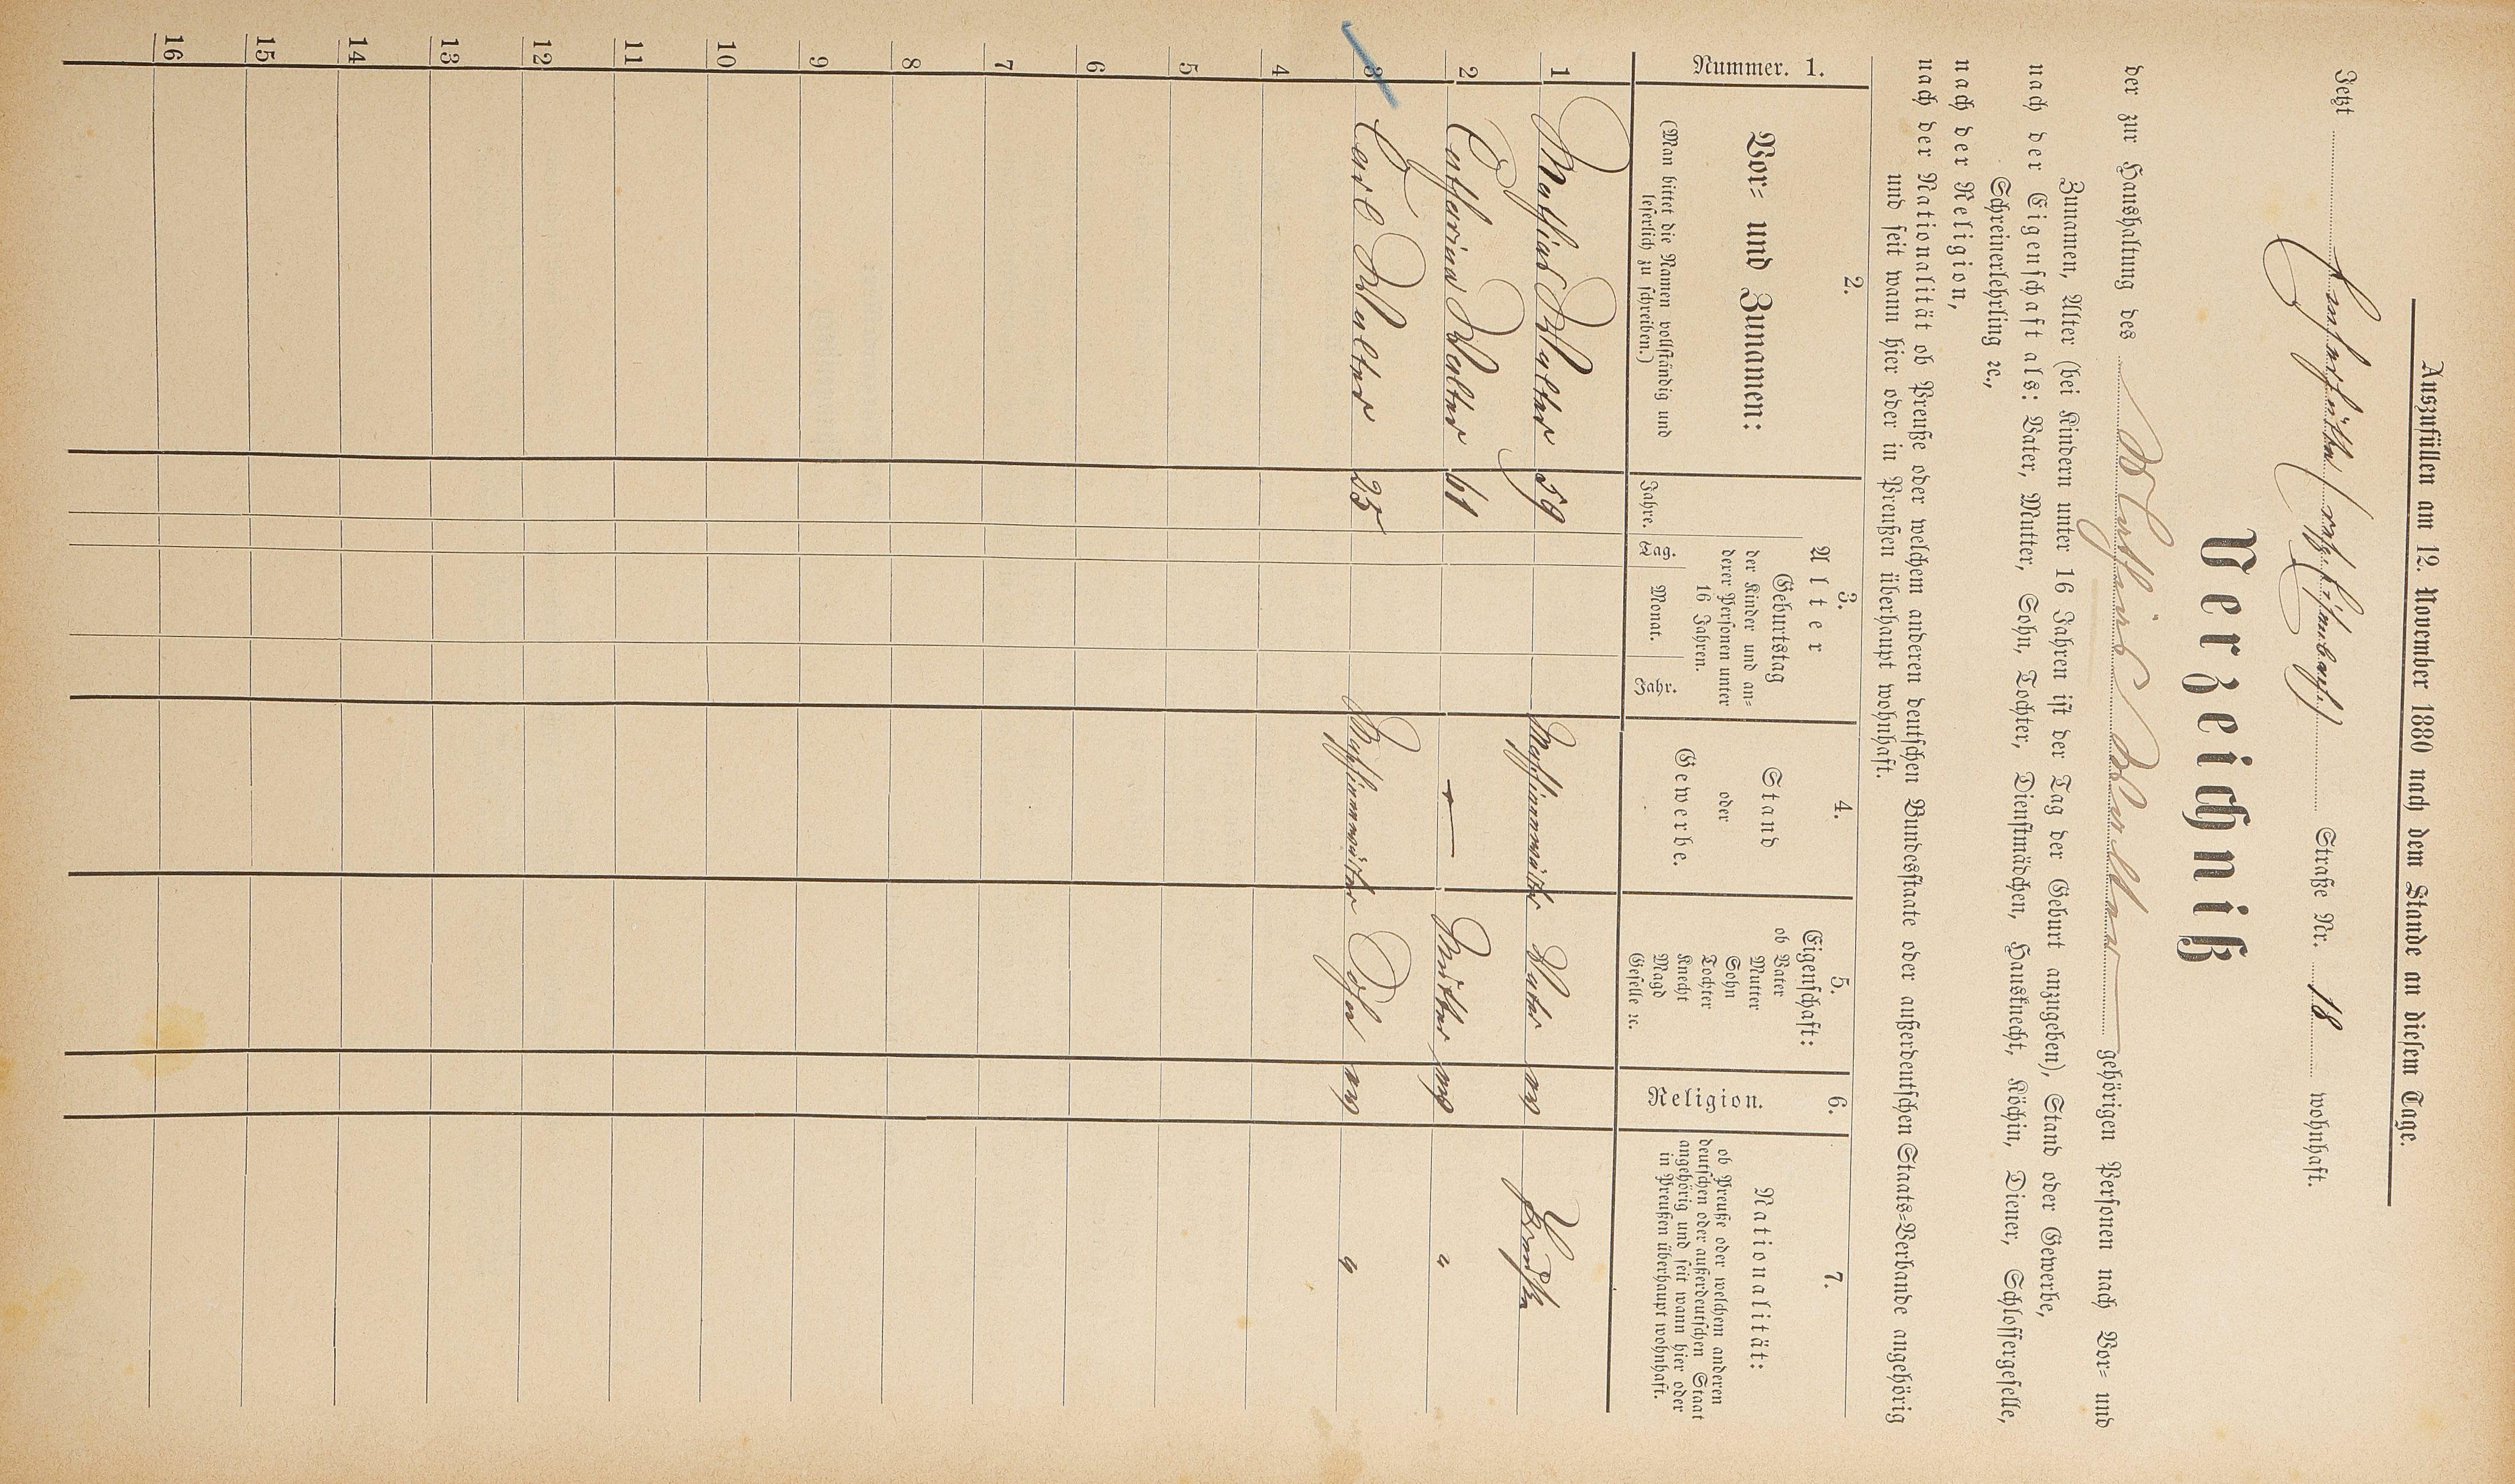 Auszufüllen am 12. November 1880 nach dem Stande an diesem Tage.
Jetzt Straße Nr. 18 wohnhaft.
Verzeichniß
der zur Haushaltung des Mathias Walter gehörigen Personen nach Vor- und
Zunamen, Alter (bei Kindern unter 16 Jahren ist der Tag der Geburt anzugeben), Stand oder Gewerbe,
nach der Eigenschaft als: Vater, Mutter, Sohn, Tochter, Dienstmädchen, Hausknecht, Köchin, Diener, Schlossergeselle,
Schreinerlehrling ꝛc.,
nach der Religion,
nach der Nationalität ob Preuße oder welchem anderen deutschen Bundesstaate oder außerdeutschen Staats-Verbande angehörig
und seit wann hier oder in Preußen überhaupt wohnhaft.
Nummer. 1.
2.
Vor- und Zunamen:
(Man bittet die Namen vollständig und
leserlich zu schreiben.)
3.
Alter
Jahre.
Geburtstag
der Kinder und an-
derer Personen unter
16 Jahren.
Tag. Monat. Jahr.
4.
Stand
oder
Gewerbe.
5.
Eigenschaft:
ob Vater
Mutter
Sohn
Tochter
Knecht
Magd
Geselle ꝛc.
6.
Religion.
7.
Nationalität:
ob Preuße oder welchem anderen
deutschen oder außerdeutschen Staat
angehörig und seit wann hier oder
in Preußen überhaupt wohnhaft.
1 Mathias Walter 59 Maschinenwärter Vater ev Preuße
2 Catharina Walter 61 " — Mutter ev "
3 Carl Walter 25 Maschinenwärter Sohn ev "
4
5
6
7
8
9
10
11
12
13
14
15
16